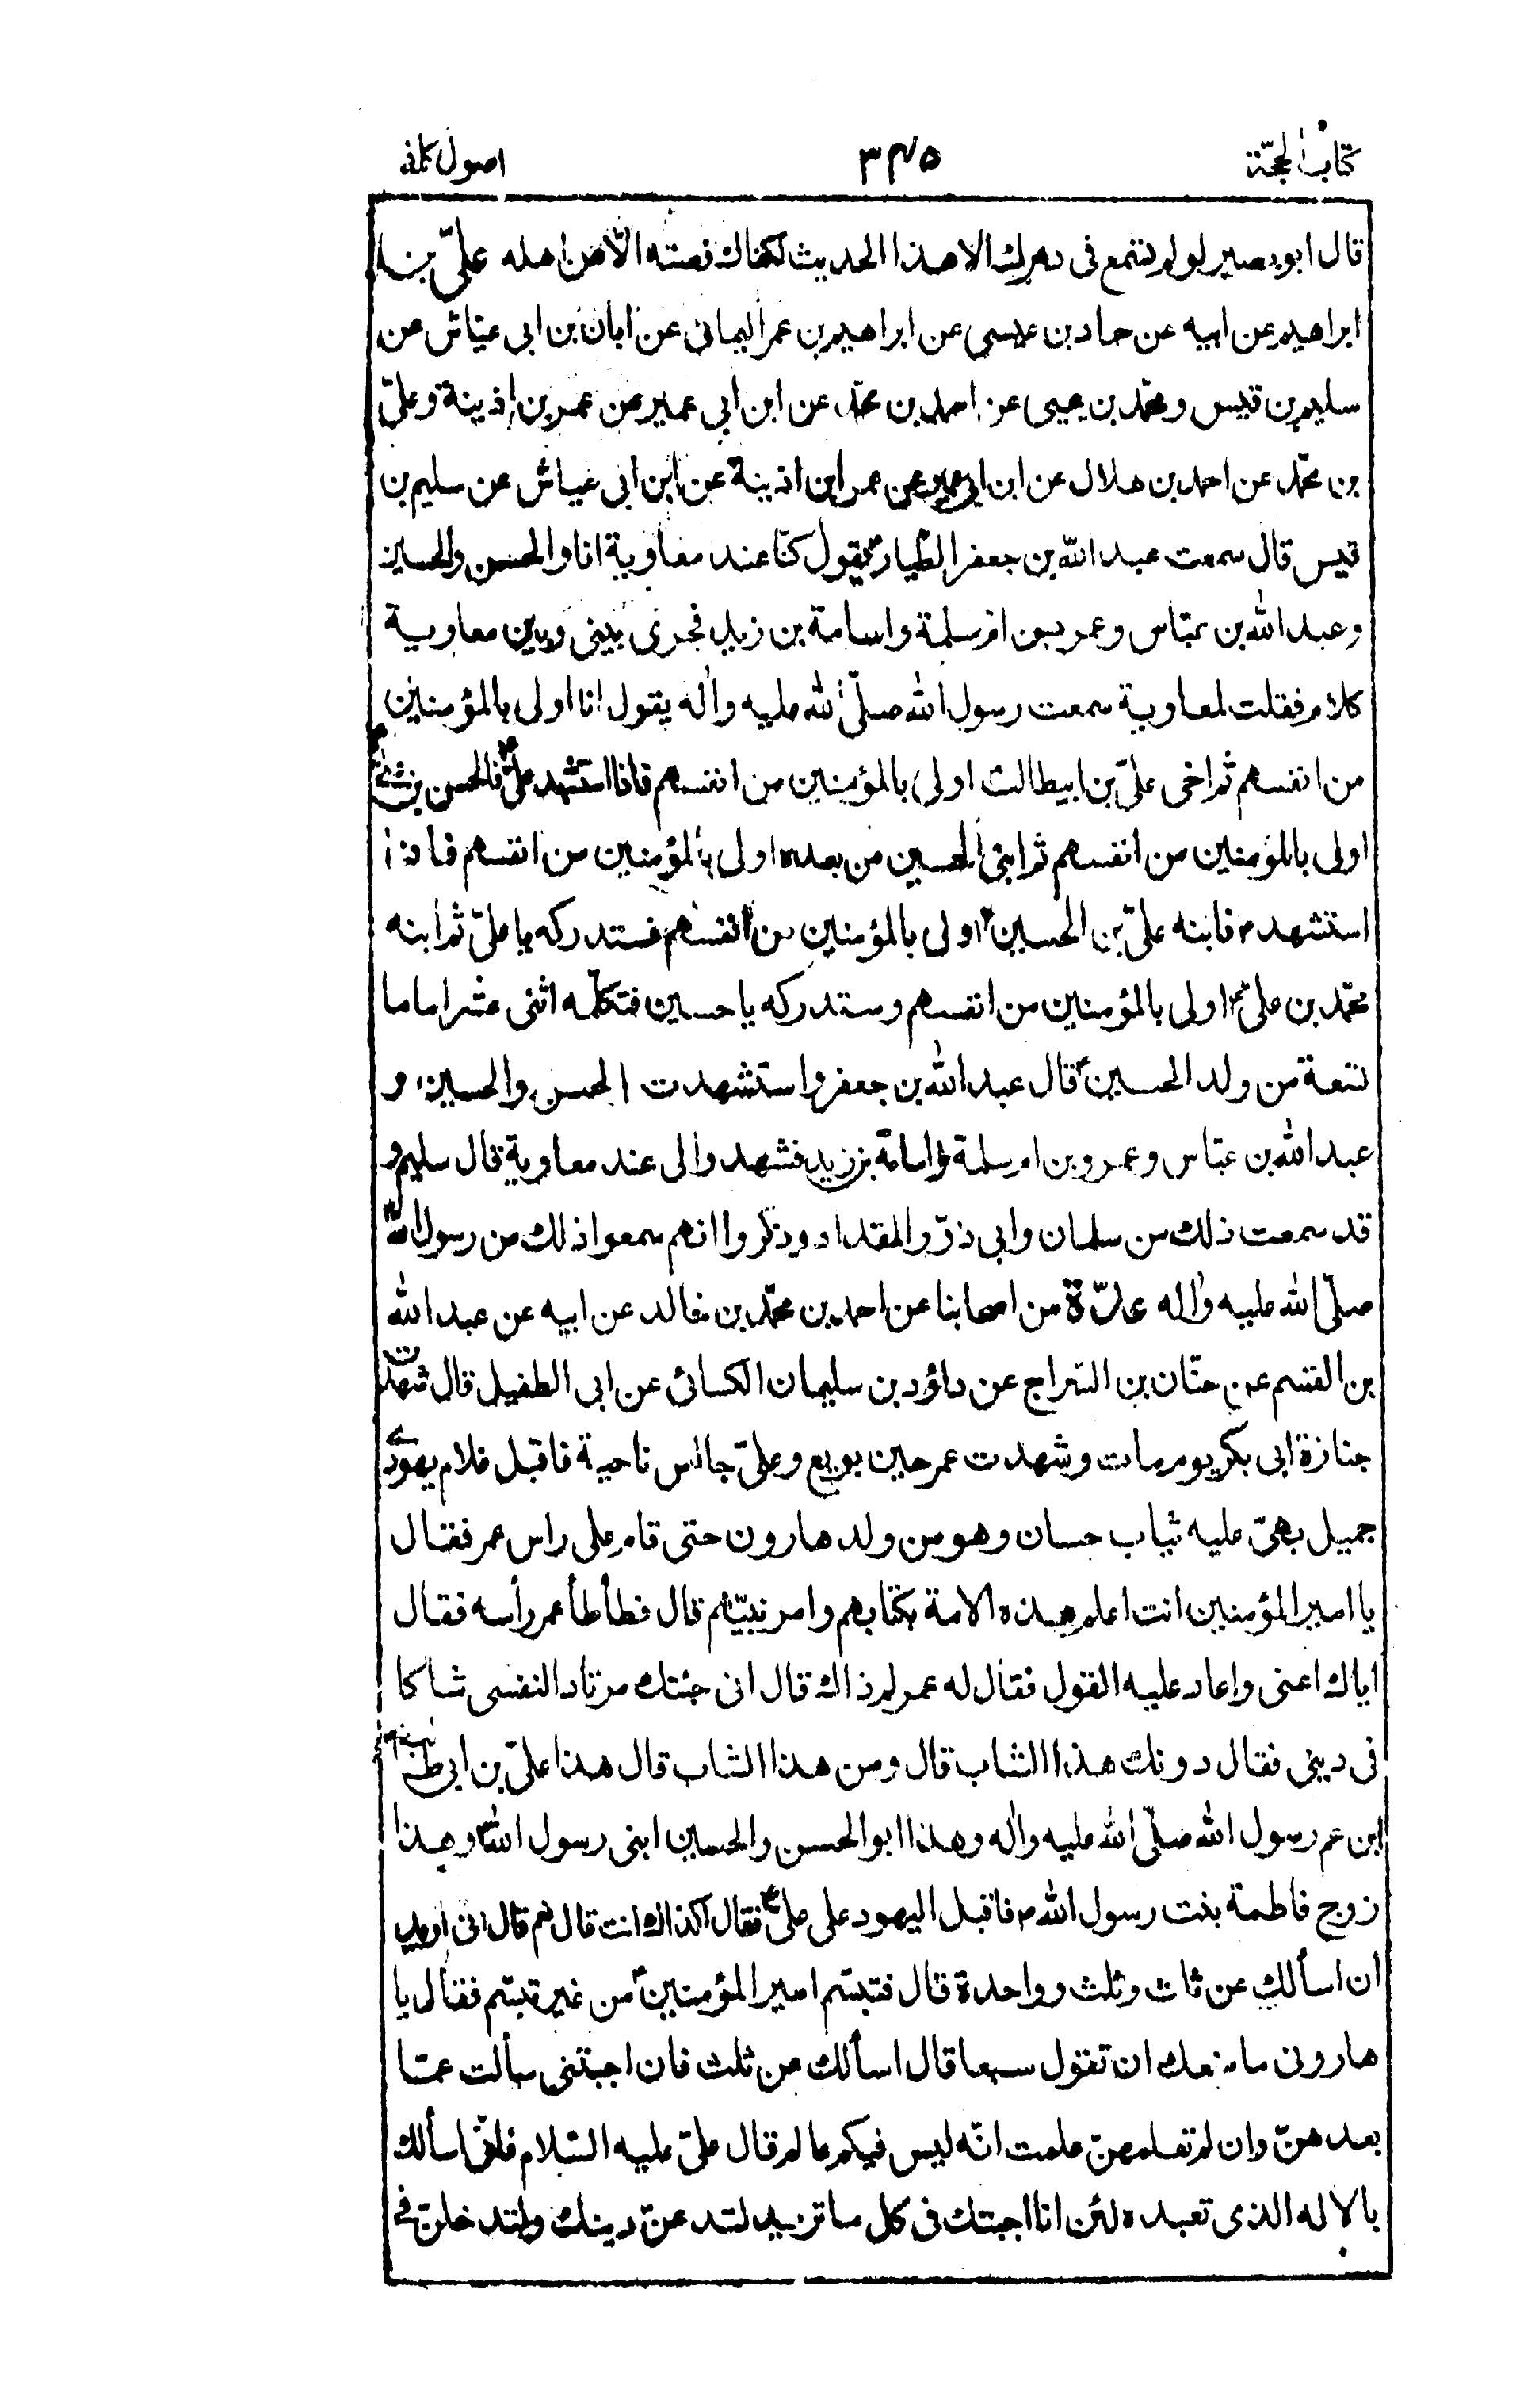 كتاب الحجّة
٣٤٥
اصول كافى
قال ابو بصير لو لم تسمع فى دهرك الا هذا الحديث لكفاك فصنه الا عن اهله علىّ بن
ابراهيم عن ابيه عن حماد بن عيسى عن ابراهيم بن عمر اليمانى عن ابان بن ابى عيّاش عن
سليم بن قيس ومحمّد بن يحيى عن احمد بن محمّد عن ابن ابى عمير عن عمر بن اذينة وعلىّ
بن محمّد عن احمد بن هلال عن ابن ابى عمير عن عمر ابن اذينة عن ابن ابى عياش عن سليم بن
قيس قال سمعت عبد الله بن جعفر الطّيار يقول كنّا عند معاوية انا والحسن والحسين
وعبد الله بن عبّاس وعمر بن ام سلمة واسامة بن زيد فجرى بينى وبين معاوية
كلام فقلت لمعاوية سمعت رسول الله صلّى الله عليه واٰله يقول انا اولى بالمؤمنين
من انفسهم ثم اخى علىّ بن ابيطالب اولى بالمؤمنين من انفسهم فاذا استشهد علىّ فالحسن بن علىّ
اولى بالمؤمنين من انفسهم ثم ابنى الحسين من بعده اولى بالمؤمنين من انفسهم فاذا
استشهد فابنه علىّ بن الحسين اولى بالمؤمنين من انفسهم فستدركه يا علىّ ثم ابنه
محمّد بن علىّ اولى بالمؤمنين من انفسهم وستدركه يا حسين فتكمّله اثنى عشر اماما
تسعة من ولد الحسين قال عبد الله بن جعفر واستشهدت الحسن والحسين و
عبد الله بن عبّاس وعمرو بن ام سلمة واسامة بن زيد فشهدوا لى عند معاوية قال سليم و
قد سمعت ذلك من سلمان وابى ذرّ والمقداد وذكروا انهم سمعوا ذلك من رسول الله
صلّى الله عليه واٰله عدّة من اصحابنا عن احمد بن محمّد بن خالد عن ابيه عن عبد الله
بن القسم عن حنّان بن السّراج عن داؤد بن سليمان الكسائى عن ابى الطفيل قال شهدت
جنازة ابى بكر يوم مات وشهدت عمر حين بويع وعلىّ جالس ناحية فاقبل غلام يهودى
جميل بهىّ عليه ثياب حسان وهو من ولد هارون حتى قام على راس عمر فقال
يا امير المؤمنين انت اعلم هذه الامة بكتابهم وامر نبيّهم قال فطأطأ عمر رأسه فقال
اياك اعنى واعاد عليه القول فقال له عمر لم ذاك قال انى جئتك مرتاد النفسى شاكا
فى دينى فقال دونك هذا الشاب قال ومن هذا الشاب قال هذا علىّ بن ابى طالب
ابن عم رسول الله صلّى الله عليه واٰله وهذا ابو الحسن والحسين ابنى رسول الله وهذا
زوج فاطمة بنت رسول الله فاقبل اليهود على علىّ فقال اكذاك انت قال نعم قال انى اريد
ان اسألك عن ثلث وثلث وواحدة قال فتبسّم امير المؤمنين من غير تبسّم فقال يا
هارونى ما منعك ان تقول سبعا قال اسألك عن ثلث فان اجبتنى سألت عمّا
بعدهنّ وان لم تعلمهنّ علمت انّه ليس فيكم عالم قال علىّ عليه السّلام فانّى اسألك
بالاله الذى تعبده لئن انا اجبتك فى كل ما تريد لتدعنّ دينك ولتدخلنّ فى